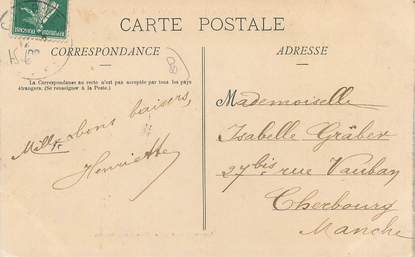 CARTE POSTALE
CORRESPONDANCE
La Correspondance au recto n'est pas acceptée par tous les pays
étrangers. (Se renseigner à la Poste.)
Mille bons baisers,
Henriette
ADRESSE
Mademoiselle
Isabelle Gräber
27 bis rue Vauban
Cherbourg
Manche